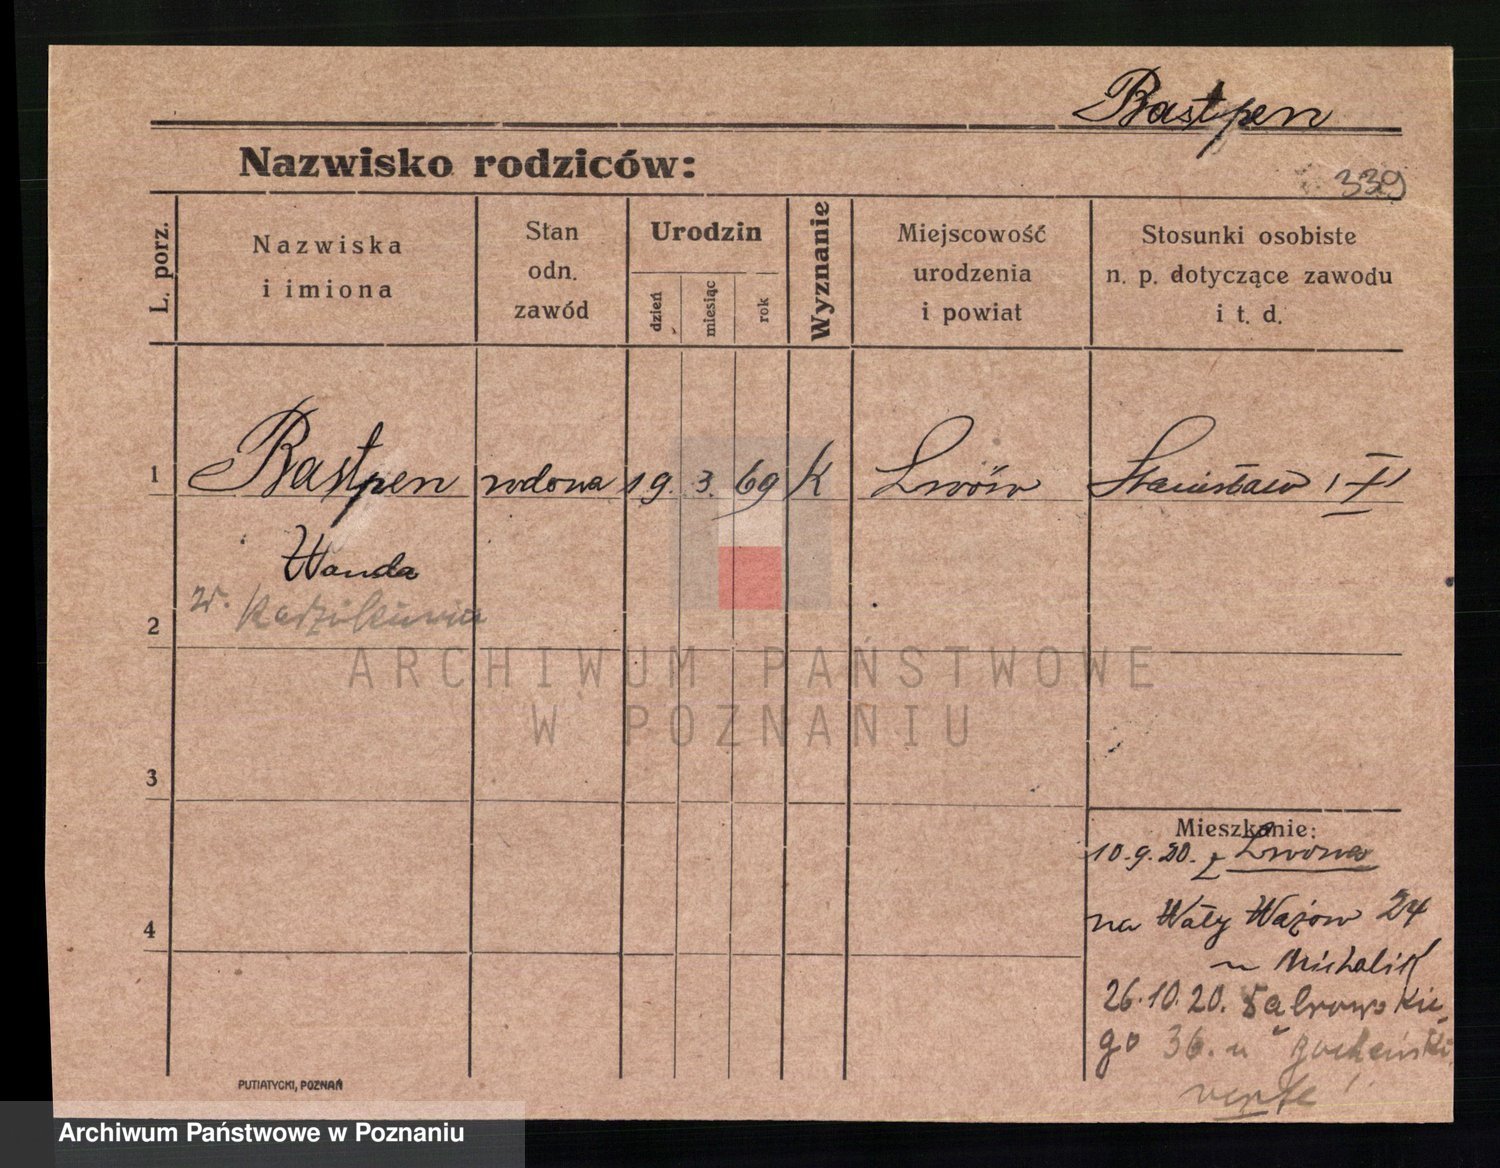 Bastpen
Nazwisko rodziców:
339
L. porz.
Nazwiska
i imiona
Stan
odn.
zawód
Urodzin
dzień
miesiąc
rok
Wyznanie
Miejscowość
urodzenia
i powiat
Stosunki osobiste
n. p. dotyczące zawodu
i t. d.
1 Bastpen wdowa 19. 3. 69 K Lwów Stanisław
Wanda
2
ARCHIWUM PAŃSTWOWE
W POZNANIU
3
Mieszkanie:
10.9.20. z Lwowa
4
na Wały Wazów 24
u Michalik
26.10.20. Dąbrowskie
go 36. u
verte
PUTIATYCKI, POZNAŃ
Archiwum Państwowe w Poznaniu